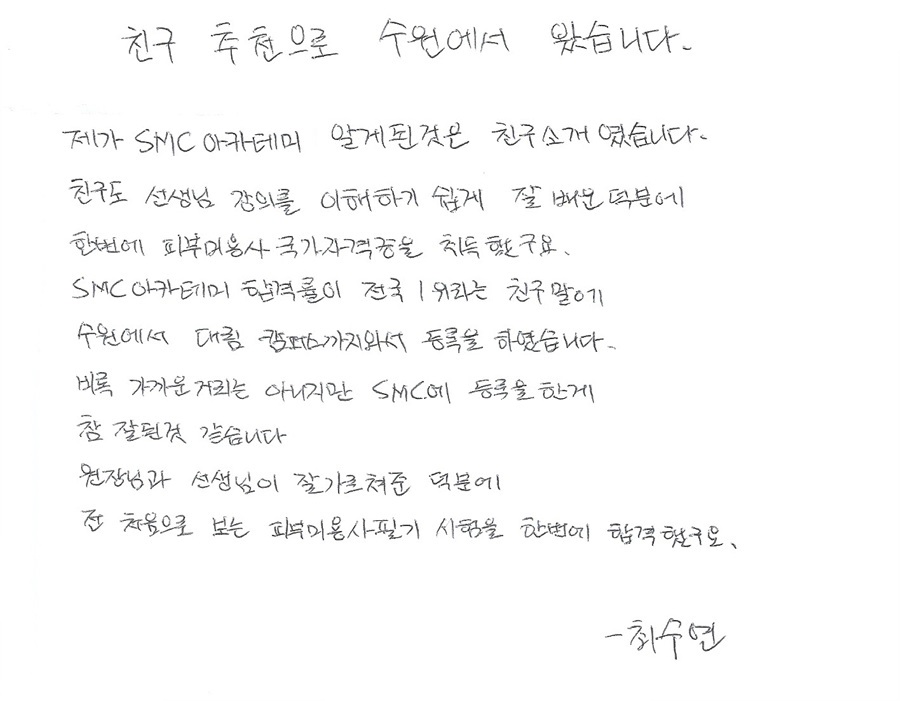 친구 추천으로 수원에서 왔습니다.
제가 SMC아카데미 알게된것은 친구소개였습니다.
친구도 선생님 강의를 이해하기 쉽게 잘 배운덕분에
한번에 피부미용사 국가자격증을 취득했구요.
SMC아카데미 합격률이 전국 1위라는 친구말에
수원에서 대림 캠퍼스까지와서 등록을 하였습니다.
비록 가까운거리는 아니지만 SMC에 등록을한게
참 잘된것 같습니다
원장님과 선생님이 잘가르쳐준 덕분에
전 처음으로 보는 피부미용사필기 시험을 한번에 합격했구요.
-최수연